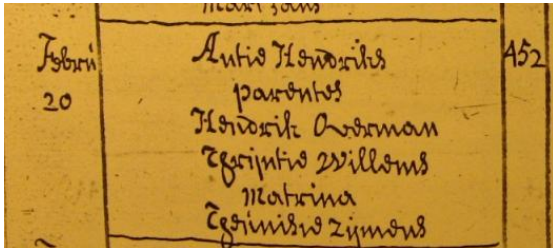 Febru Antie Hendriks 452
20 parentes
Hendrik Overman
Trijntie Willems
matrina
Teunisie Zijmens